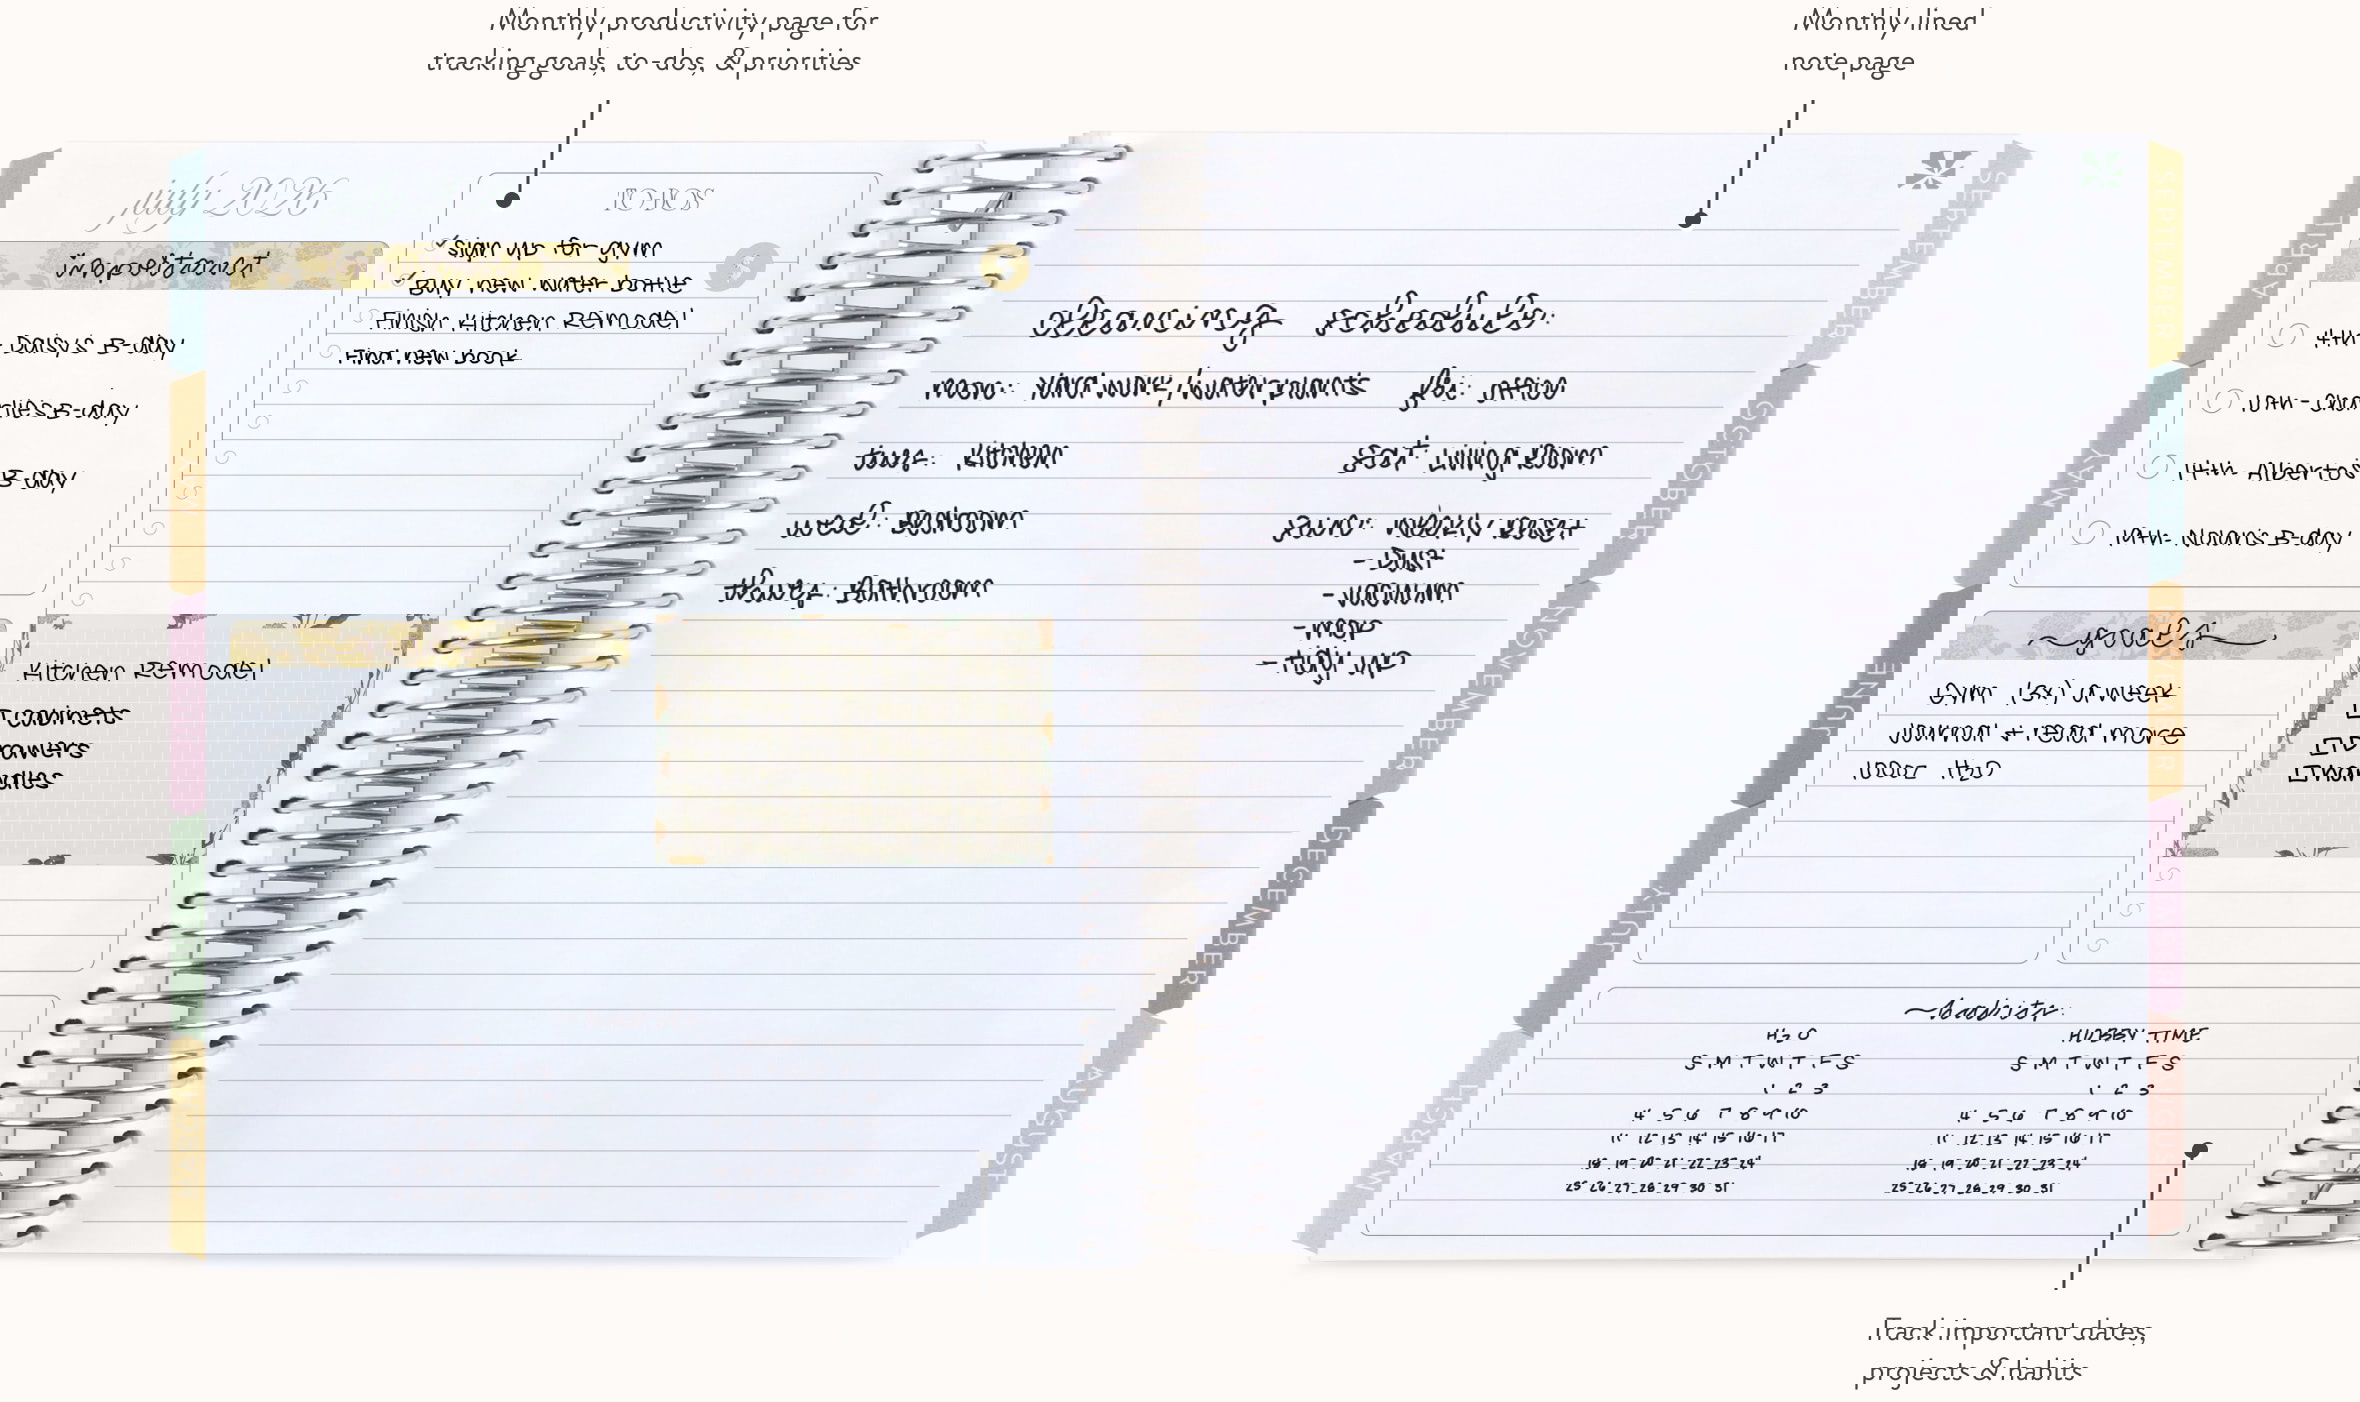 Monthly productivity page for
tracking goals, to-dos, & priorities
Monthly lined
note page
july 2026
important
4th- Daisy's B-day
10th- Charlie's B-day
14th- Alberto's B-day
19th- Nolan's B-day
TO DOS
sign up for gym
Buy new water bottle
Finish Kitchen Remodel
Find new book
goals
Gym (3x) a week
Journal + read more
100oz H2O
Kitchen Remodel
cabinets
Drawers
habits
H2O
S M T W T F S
1 2 3
4 5 6 7 8 9 10
11 12 13 14 15 16 17
18 19 20 21 22 23 24
25 26 27 28 29 30 31
HOBBY TIME
S M T W T F S
1 2 3
4 5 6 7 8 9 10
11 12 13 14 15 16 17
18 19 20 21 22 23 24
25 26 27 28 29 30 31
cleaning schedule:
mon: Yard work/water plants
tues: Kitchen
wed: Bedroom
thurs: Bathroom
fri: office
sat: Living Room
sun: Weekly Reset
- Dust
- vacuum
- mop
- tidy up
MARCH
APRIL
MAY
JUNE
JULY
AUGUST
SEPTEMBER
OCTOBER
NOVEMBER
DECEMBER
Track important dates,
projects & habits